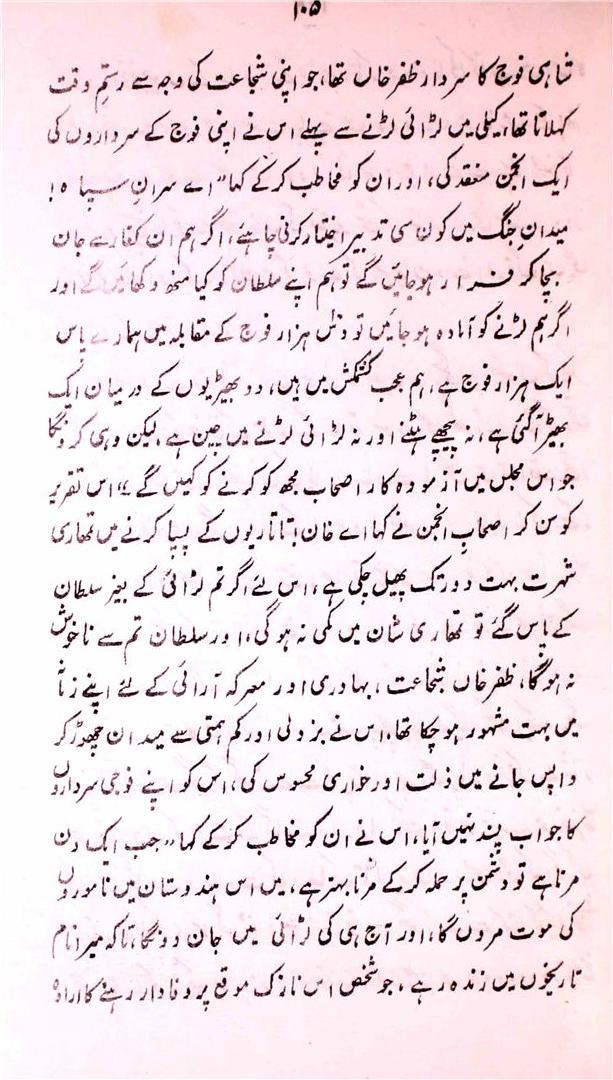 ۱۰۵
شاہی فوج کا سردار ظفر خاں تھا، جو اپنی شجاعت کی وجہ سے رستمِ وقت
کہلاتا تھا، کیلی میں لڑائی لڑنے سے پہلے اس نے اپنی فوج کے سرداروں کی
ایک انجمن منعقد کی، اور ان کو مخاطب کرکے کہا "اے سرانِ سپاہ!
میدانِ جنگ میں کون سی تدبیر اختیار کرنی چاہئے، اگر ہم ان کفار سے جان
بچا کر فرار ہوجائیں گے تو ہم اپنے سلطان کو کیا منھ دکھائیں گے اور
اگر ہم لڑنے کو آمادہ ہوجائیں تو دس ہزار فوج کے مقابلہ میں ہمارے پاس
ایک ہزار فوج ہے، ہم عجب کشمکش میں ہیں، دو بھیڑیوں کے درمیان ایک
بھیڑ آگئی ہے، نہ پیچھے ہٹنے اور نہ لڑائی لڑنے میں چین ہے، لیکن وہی کرونگا
جو اس مجلس میں آزمودہ کار اصحاب مجھ کو کرنے کو کہیں گے"، اس تقریر
کو سن کر اصحابِ انجمن نے کہا اے خان! تاتاریوں کے پسپا کرنے میں تمھاری
شہرت بہت دور تک پھیل چکی ہے، اس لئے اگر تم لڑائی کے بغیر سلطان
کے پاس گئے تو تمھاری شان میں کمی نہ ہوگی، اور سلطان تم سے ناخوش
نہ ہوگا، ظفر خاں شجاعت، بہادری اور معرکہ آرائی کے لئے اپنے زمانہ
میں بہت مشہور ہوچکا تھا، اس نے بزدلی اور کم ہمتی سے میدان چھوڑ کر
واپس جانے میں ذلت اور خواری محسوس کی، اس کو اپنے فوجی سرداروں
کا جواب پسند نہیں آیا، اس نے ان کو مخاطب کرکے کہا "جب ایک دن
مرنا ہے تو دشمن پر حملہ کرکے مرنا بہتر ہے، میں اس ہندوستان میں ناموروں
کی موت مروں گا، اور آج ہی کی لڑائی میں جان دونگا، تاکہ میرا نام
تاریخوں میں زندہ رہے، جو شخص اس نازک موقع پر وفادار رہنے کا ارادہ